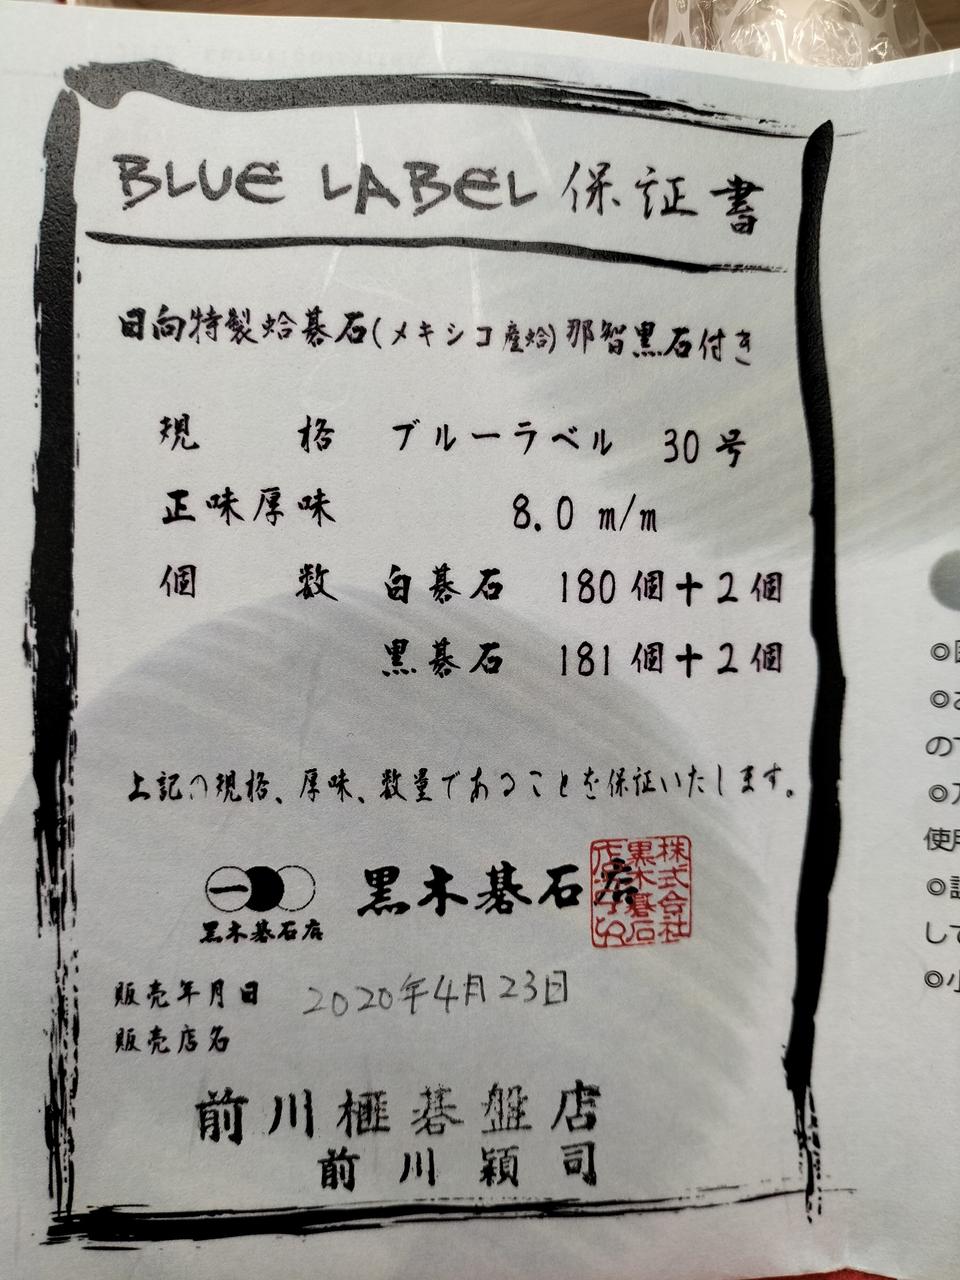 BLUE LABEL 保証書
日向特製蛤碁石(メキシコ産蛤)那智黒石付き
規 格 ブルーラベル 30号
正味厚味 8.0 m/m
個 数 白碁石 180個+2個
黒碁石 181個+2個
上記の規格、厚味、数量であることを保証いたします。
黒木碁石店
黒木碁石店
株式会社
黒木碁石
販売年月日 2020年4月23日
販売店名
前川榧碁盤店
前川穎司
◎
◎
ので
◎
使用
◎
して
◎小